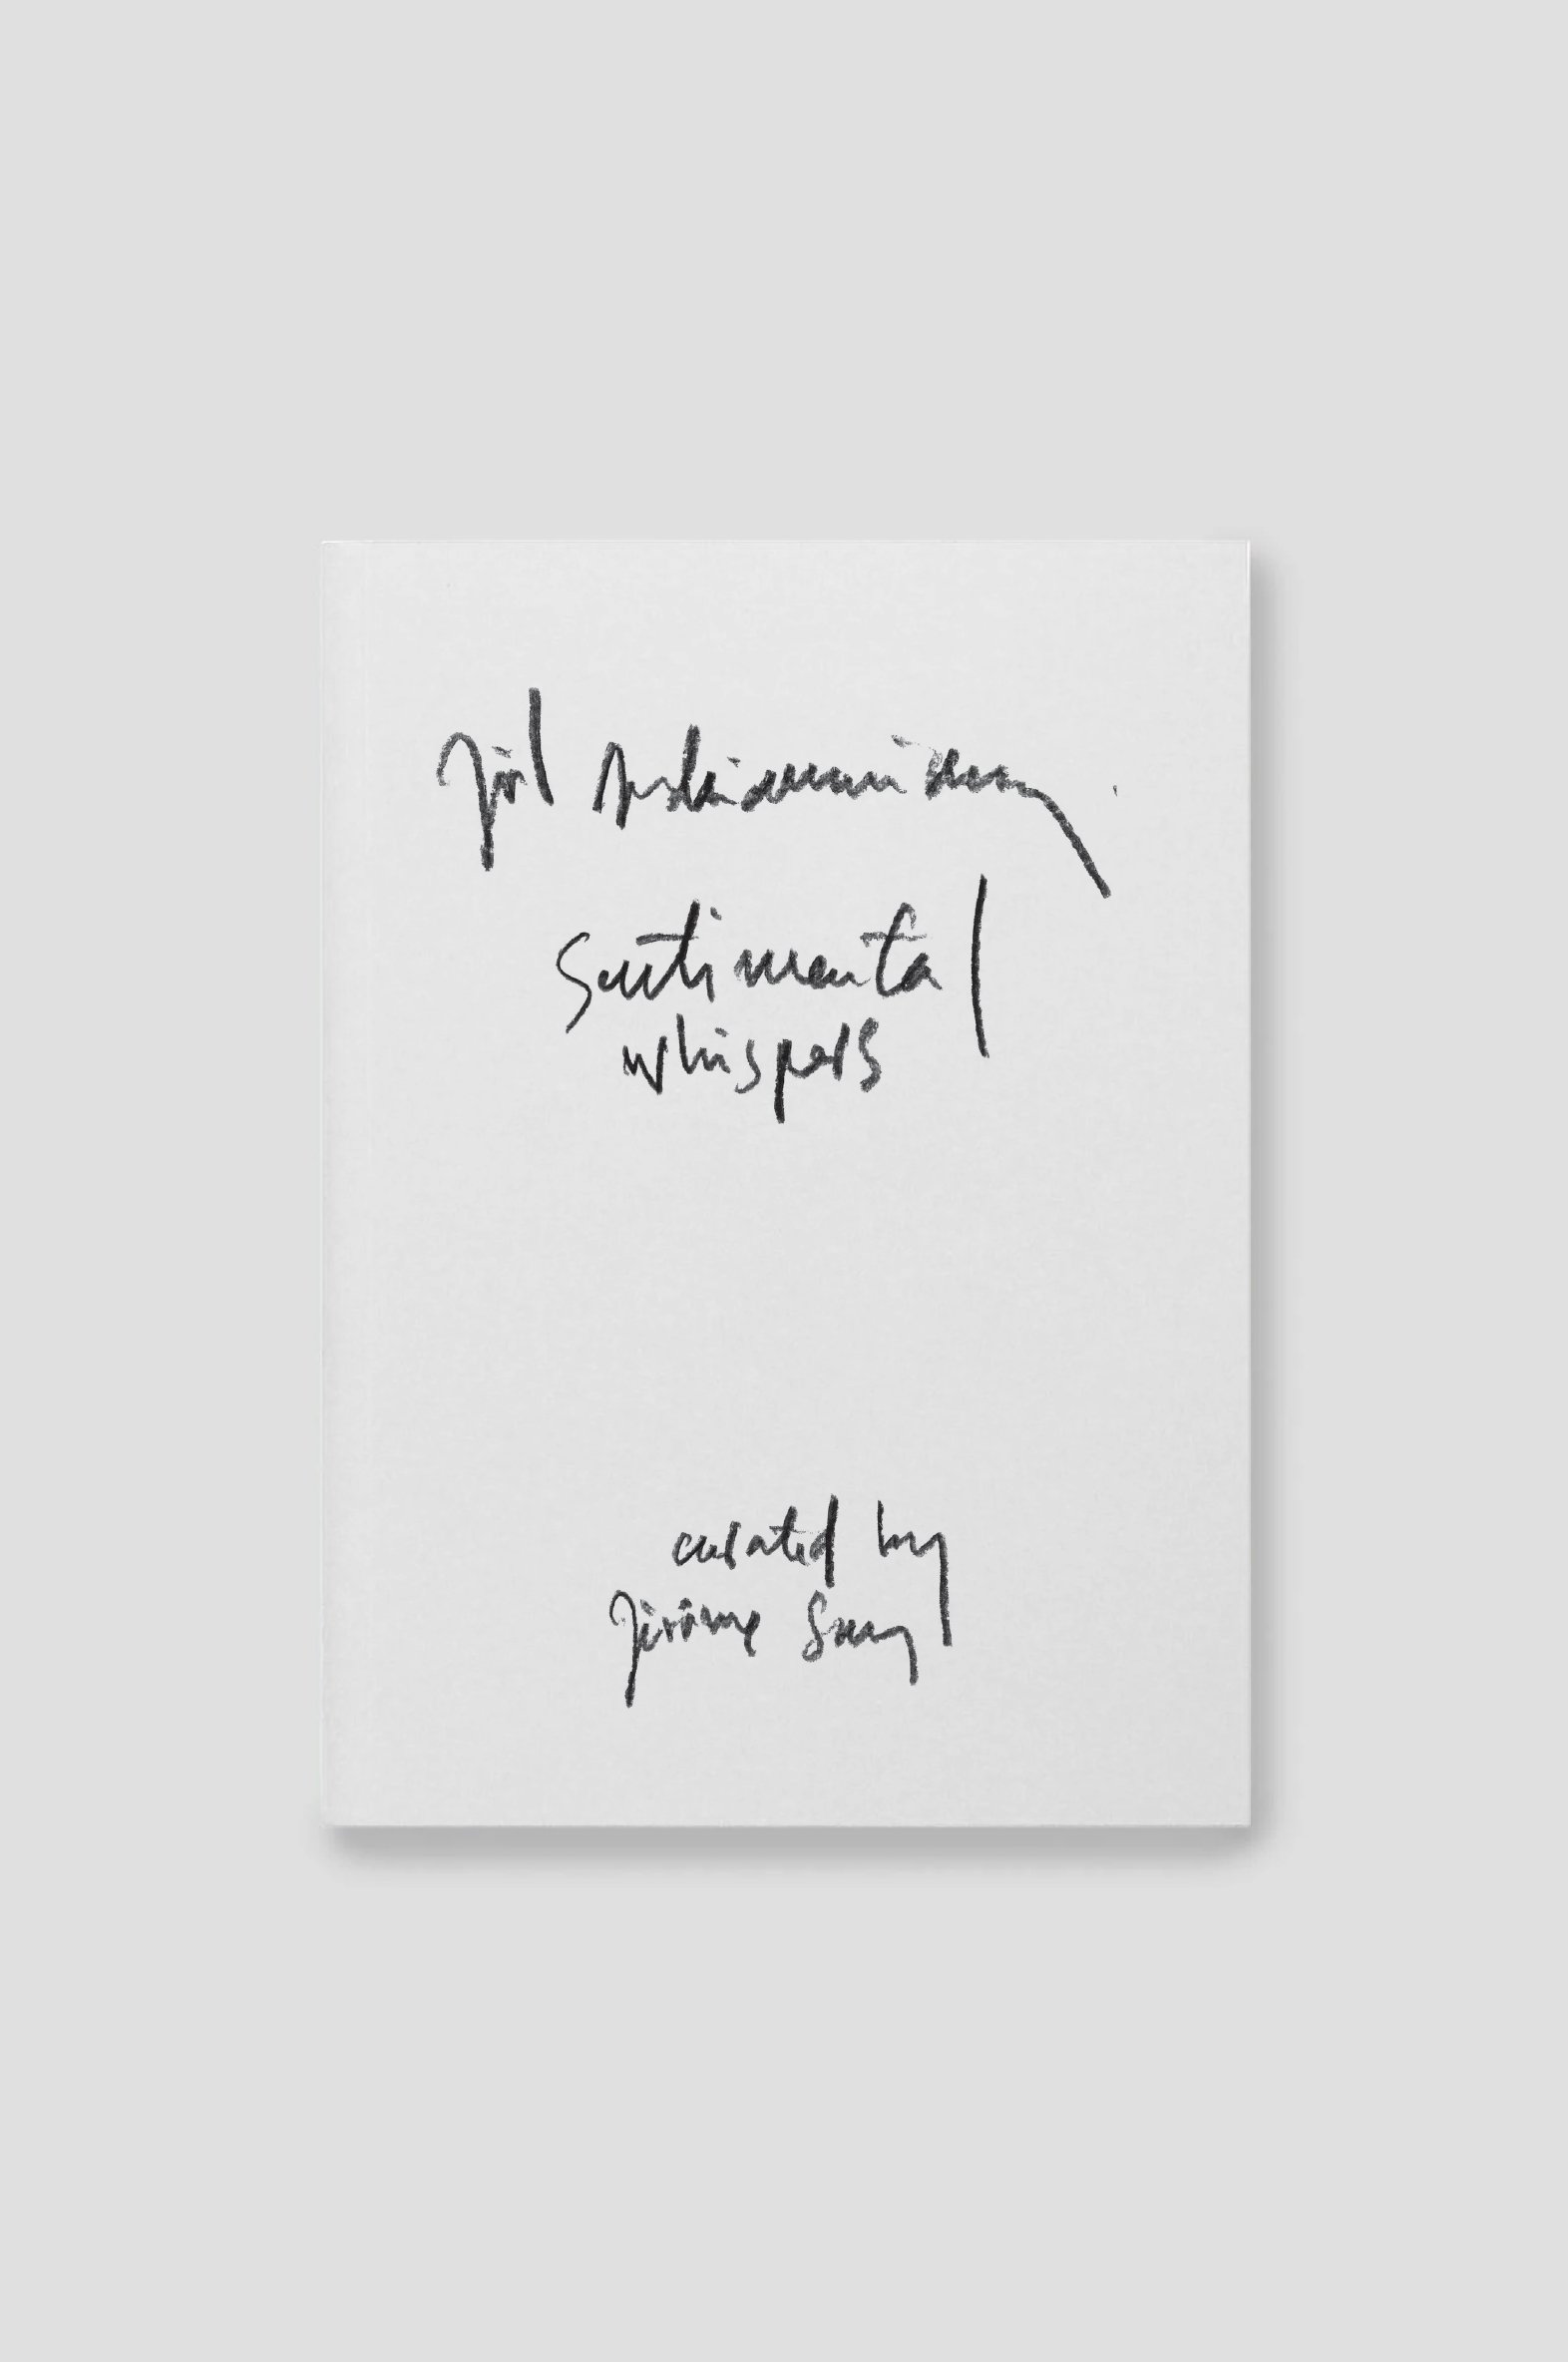 Joël Andrianomearisoa
Sentimental
whispers
curated by
Jérôme Sans